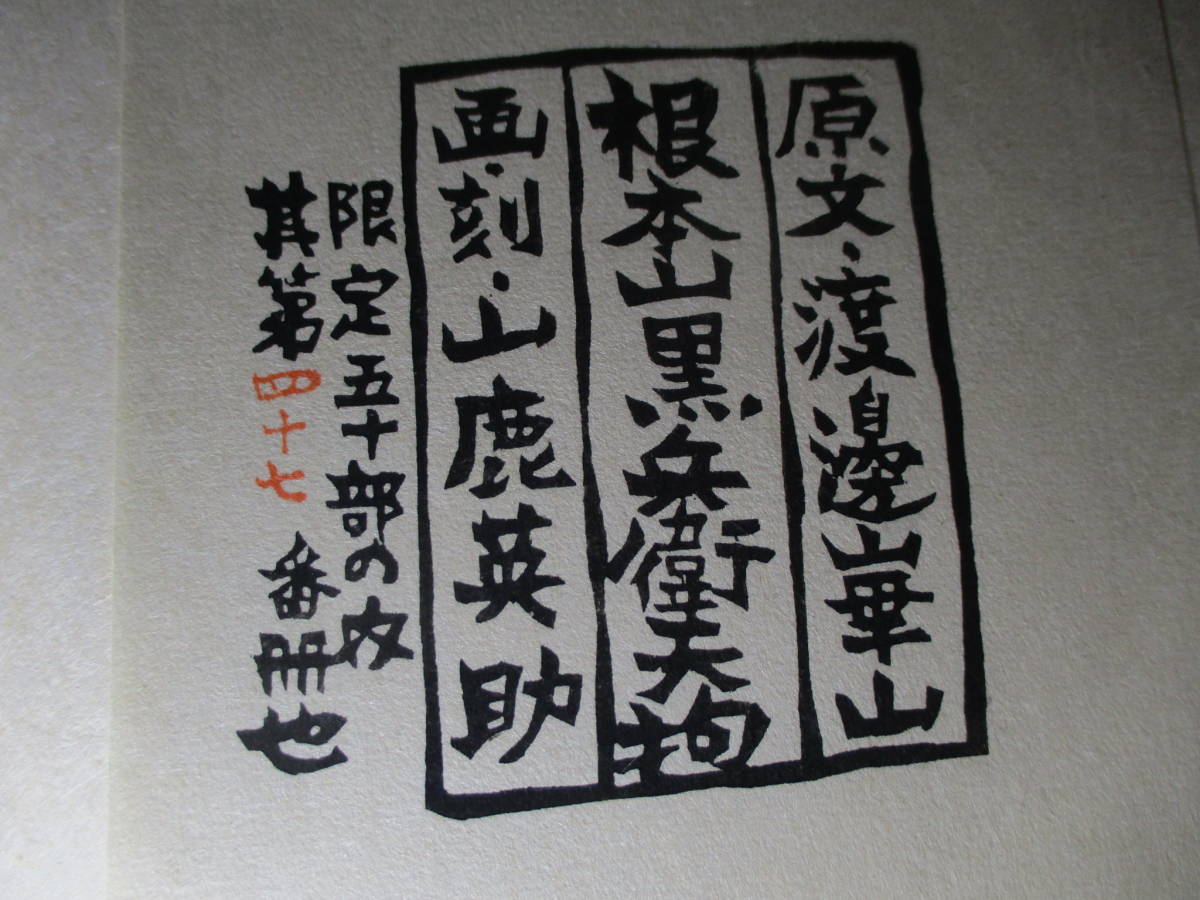 原文・渡邊山華山
根本山黒兵衛天狗
画・刻・山鹿英助
限定五十部の内
其第四十七番冊也